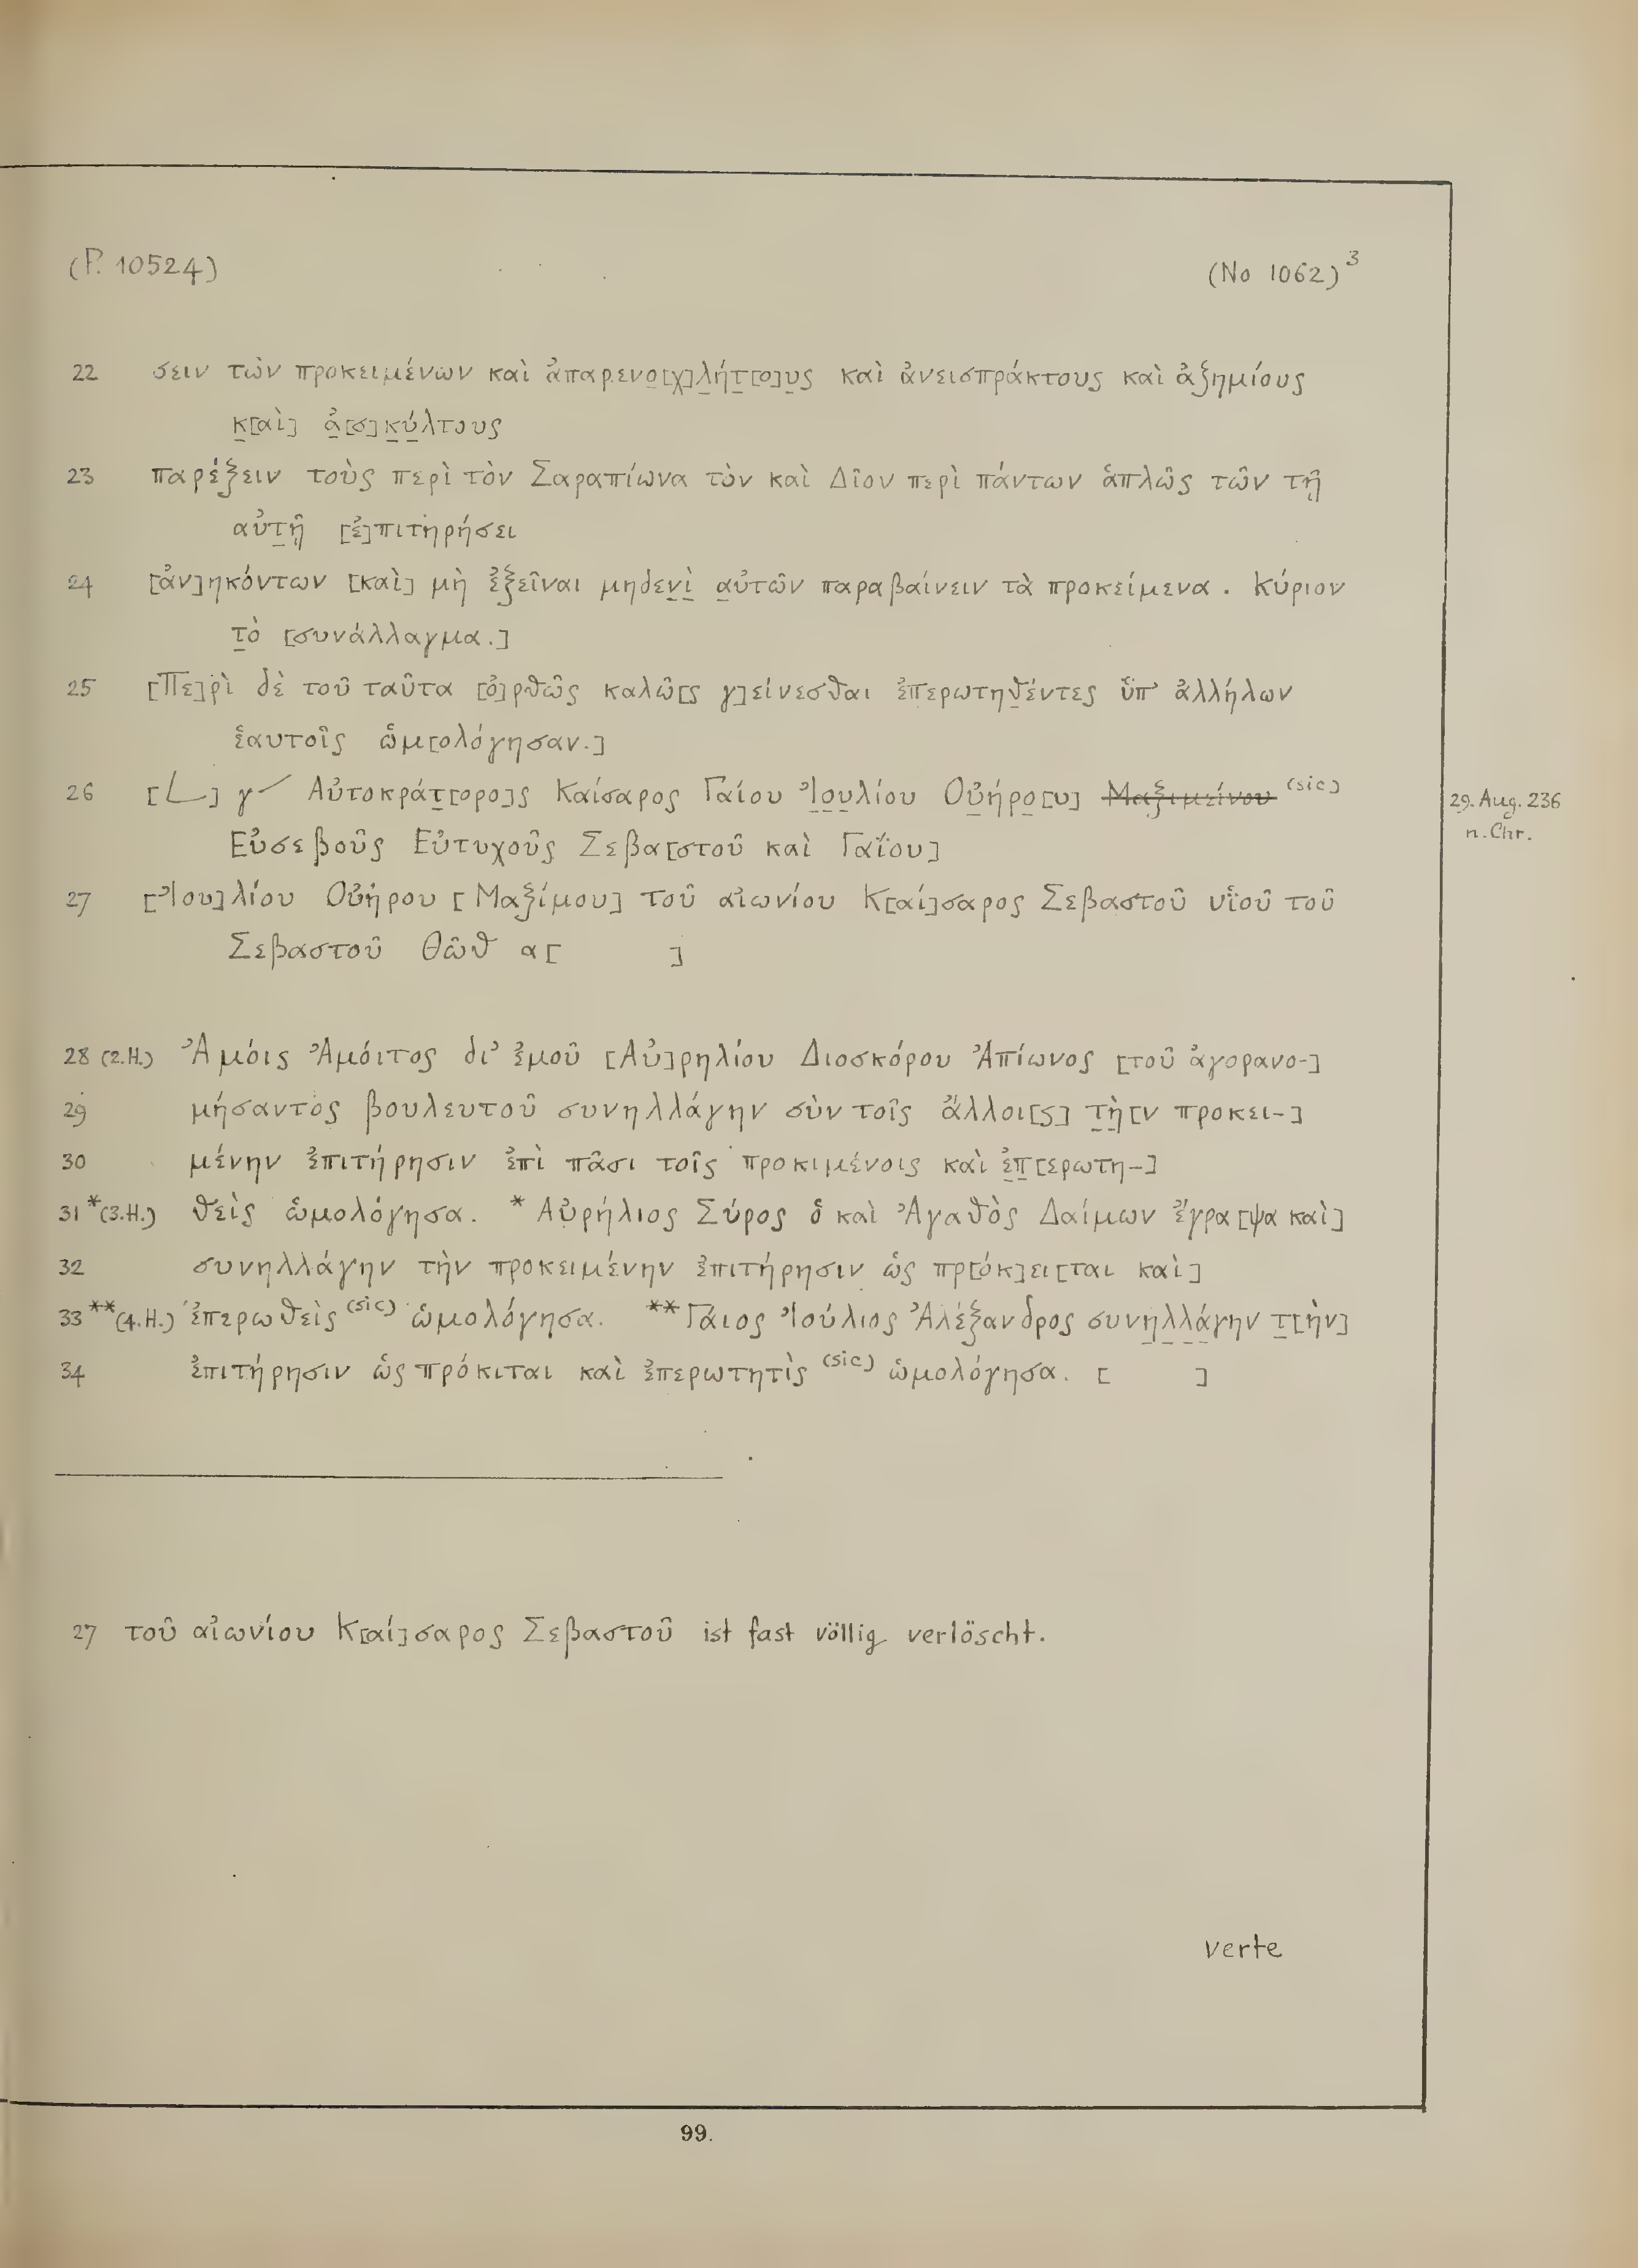 (P. 10524)
(No 1062)³
22 σειν τῶν προκειμένων καὶ ἀπαρενο̣[χ]λ̣ήτ̣[ο]υ̣ς καὶ ἀνεισπράκτους καὶ ἀζημίους
κ̣[αὶ] ἀ̣[σ]κ̣ύ̣λτους
23 παρέξειν τοὺς περὶ τὸν Σαραπίωνα τὸν καὶ Δῖον περὶ πάντων ἁπλῶς τῶν τῇ
αὐτ̣ῇ [ἐ]πιτηρήσει
24 [ἀν]ηκόντων [καὶ] μὴ ἐξεῖναι μηδεν̣ὶ̣ α̣ὐτῶν παραβαίνειν τὰ προκείμενα. Κύριον
τ̣ὸ [συνάλλαγμα.]
25 [Πε]ρὶ δὲ τοῦ ταῦτα [ὀ]ρθῶς καλῶ[ς γ]είνεσθαι ἐπερωτηθ̣έντες ὑπ' ἀλλήλων
ἑαυτοῖς ὡμ[ολόγησαν.]
26 [L] γ⁄ Αὐτοκράτ̣[ορο]ς Καίσαρος Γαίου Ἰ̣ο̣υ̣λίου Οὐ̣ήρο̣[υ] ~~Μαξιμείνου~~ (sic)
29. Aug. 236
n. Chr.
Εὐσεβοῦς Εὐτυχοῦς Σεβα[στοῦ καὶ Γαΐου]
27 [Ἰου]λίου Οὐήρου [Μαξίμου] τοῦ αἰωνίου Κ[αί]σαρος Σεβαστοῦ υἱοῦ τοῦ
Σεβαστοῦ Θὼθ α[ ]
28 (2.H.) Ἀμόις Ἀμόιτος δι' ἐμοῦ [Αὐ]ρηλίου Διοσκόρου Ἀπίωνος [τοῦ ἀγορανο-]
29 μήσαντος βουλευτοῦ συνηλλάγην σὺν τοῖς ἄλλοι[ς] τ̣ὴ̣[ν προκει-]
30 μένην ἐπιτήρησιν ἐπὶ πᾶσι τοῖς προκιμένοις καὶ ἐ̣π̣[ερωτη-]
31 *(3.H.) θεὶς ὡμολόγησα. * Αὐρήλιος Σύρος ὁ καὶ Ἀγαθὸς Δαίμων ἔγρα[ψα καὶ]
32 συνηλλάγην τὴν προκειμένην ἐπιτήρησιν ὡς πρ[όκ]ει[ται καὶ]
33 **(4.H.) ἐπερωθεὶς (sic) ὡμολόγησα. ** Γάιος Ἰούλιος Ἀλέξανδρος συνη̣λ̣λ̣ά̣γην τ̣[ὴν]
34 ἐπιτήρησιν ὡς πρόκιται καὶ ἐπερωτητὶς (sic) ὡμολόγησα. [ ]
27 τοῦ αἰωνίου Κ[αί]σαρος Σεβαστοῦ ist fast völlig verlöscht.
verte
99.